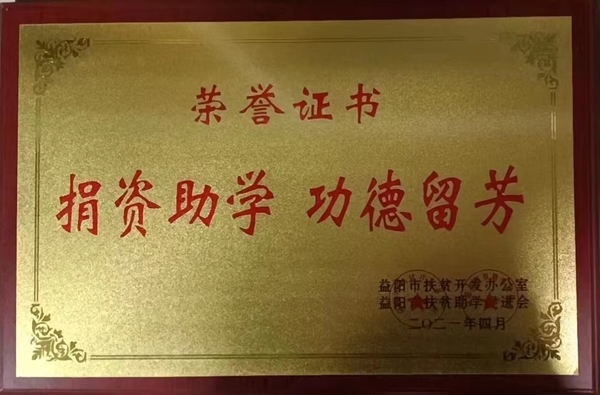 荣誉证书
捐资助学 功德留芳
益阳市扶贫开发办公室
益阳市扶贫助学促进会
二〇二一年四月